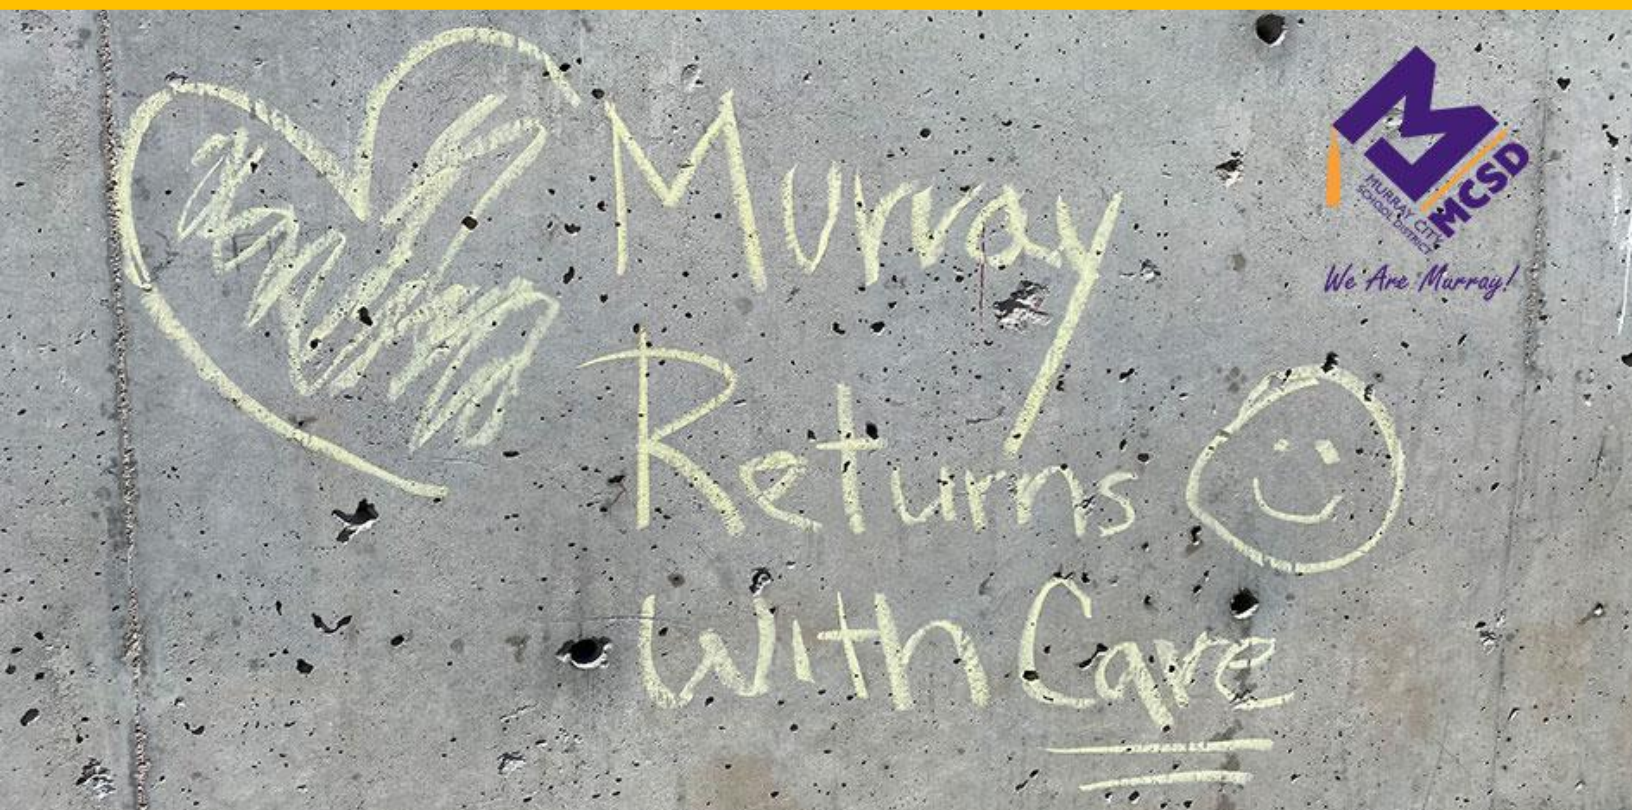 Murray
Returns
With Care
MCSD
MURRAY CITY
SCHOOL DISTRICT
We Are Murray!